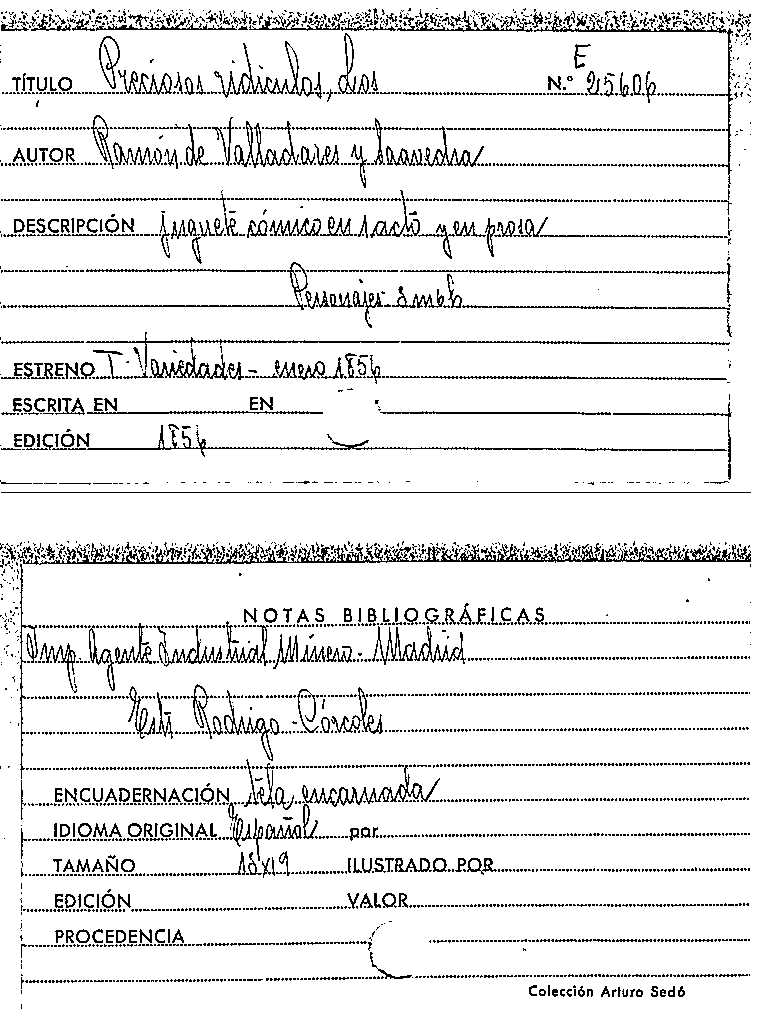 E
TÍTULO Preciosos ridiculos, Los N.º 25606
AUTOR Ramón de Valladares y Saavedra
DESCRIPCIÓN juguete cómico en 1 acto y en prosa
Personajes
ESTRENO T. Variedades - enero 1856
ESCRITA EN EN
EDICIÓN 1856
NOTAS BIBLIOGRÁFICAS
Imp. Agente Industrial Minero - Madrid
Rodrigo - Córcoles
ENCUADERNACIÓN tela encarnada
IDIOMA ORIGINAL Español por
TAMAÑO ILUSTRADO POR
EDICIÓN VALOR
PROCEDENCIA
Colección Arturo Sedó